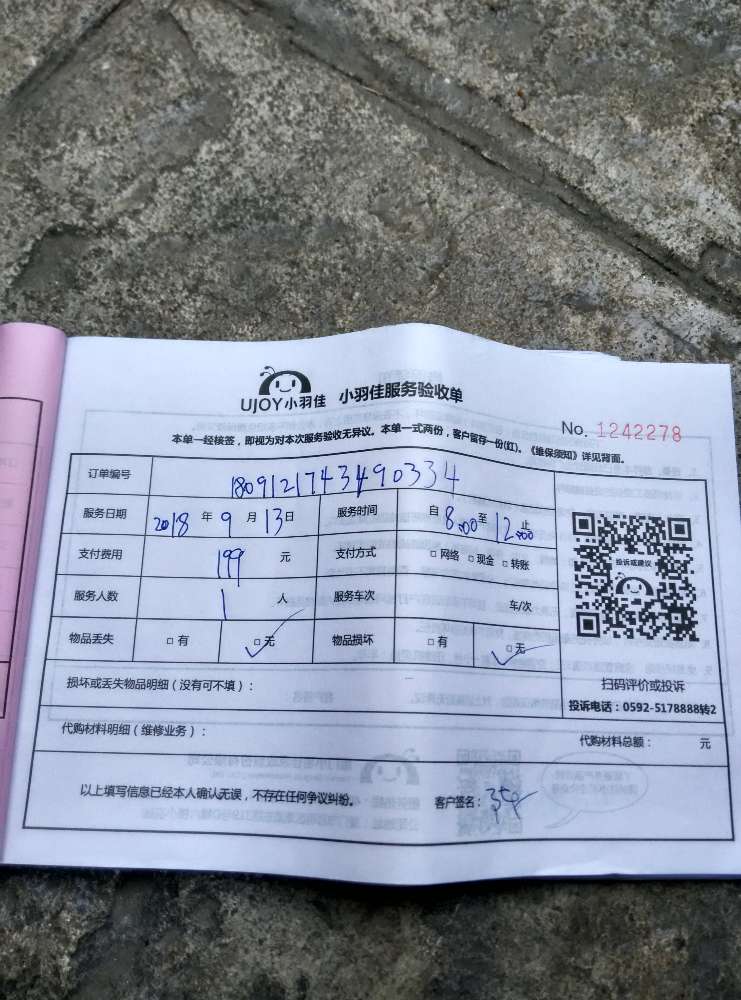 UJOY小羽佳 小羽佳服务验收单
No. 1242278
本单一经核签，即视为对本次服务验收无异议。本单一式两份，客户留存一份(红)。《维保须知》详见背面。
订单编号 1809121743490334
服务日期 2018 年 9 月 13 日 服务时间 自 8:00 至 12:00 止
支付费用 199 元 支付方式 □网络 □现金 □转账
服务人数 1 人 服务车次 车/次
物品丢失 □有 □无 物品损坏 □有 □无
投诉或建议
扫码评价或投诉
投诉电话：0592-5178888转2
损坏或丢失物品明细（没有可不填）：
代购材料明细（维修业务）： 代购材料总额： 元
以上填写信息已经本人确认无误，不存在任何争议纠纷。 客户签名：